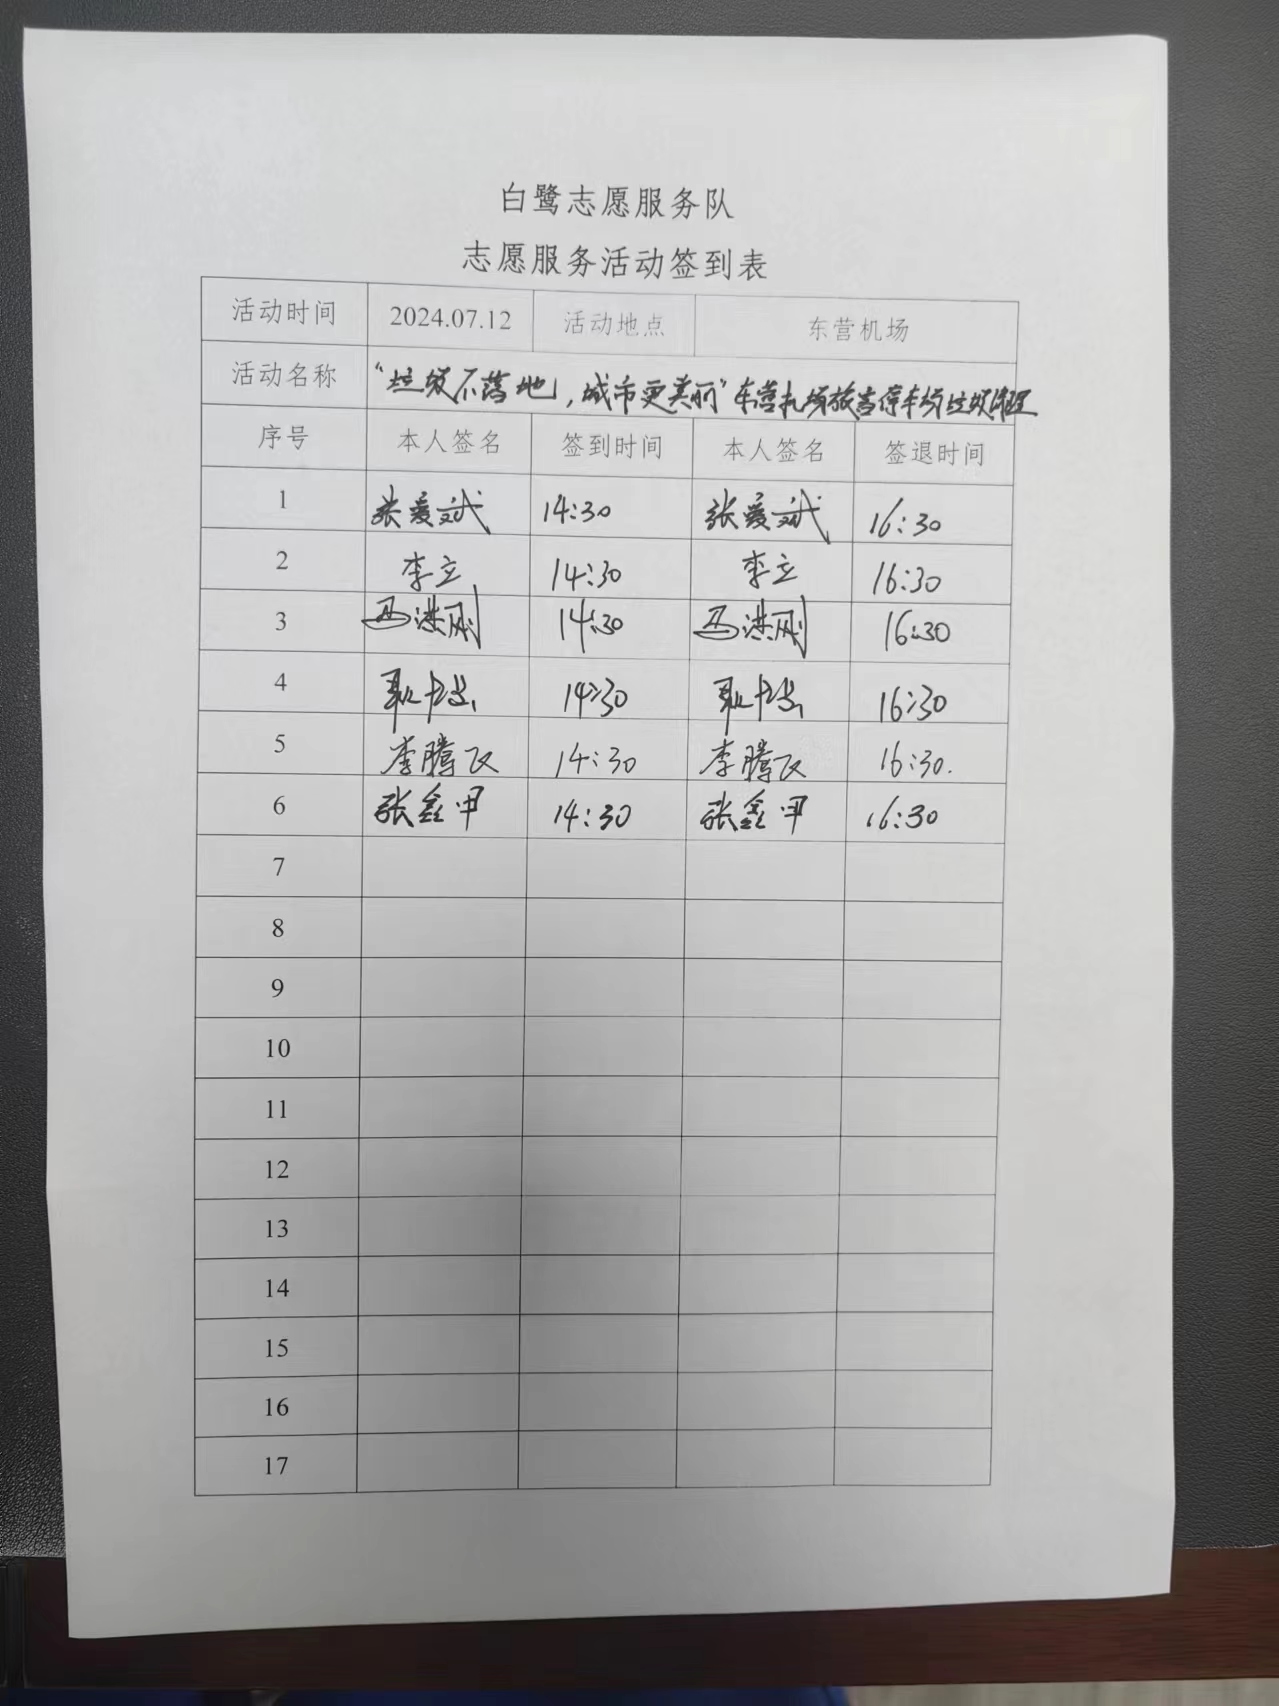 白鹭志愿服务队
志愿服务活动签到表
活动时间 2024.07.12 活动地点 东营机场
活动名称 “垃圾不落地,城市更美丽”东营机场旅客停车场垃圾清理
序号 本人签名 签到时间 本人签名 签退时间
1 张爱斌 14:30 张爱斌 16:30
2 李立 14:30 李立 16:30
3 马洪刚 14:30 马洪刚 16:30
4 14:30 16:30
5 李腾飞 14:30 李腾飞 16:30.
6 张鑫甲 14:30 张鑫甲 16:30
7
8
9
10
11
12
13
14
15
16
17